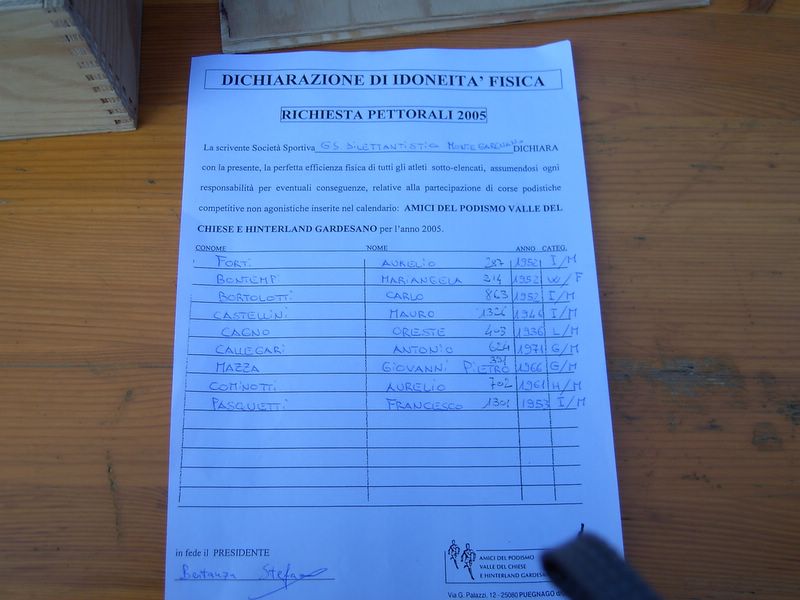 DICHIARAZIONE DI IDONEITA' FISICA
RICHIESTA PETTORALI 2005
La scrivente Società Sportiva GS. DILETTANTISTICA MONTEGARGNANO DICHIARA
con la presente, la perfetta efficienza fisica di tutti gli atleti sotto-elencati, assumendosi ogni
responsabilità per eventuali conseguenze, relative alla partecipazione di corse podistiche
competitive non agonistiche inserite nel calendario: AMICI DEL PODISMO VALLE DEL
CHIESE E HINTERLAND GARDESANO per l'anno 2005.
CONOME NOME ANNO CATEG.
FORTI AURELIO 287 1952 I/M
BONTEMPI MARIANGELA 214 1952 W/F
BORTOLOTTI CARLO 863 1952 I/M
CASTELLINI MAURO 1944 I/M
CAGNO ORESTE 403 1936 L/M
CALLEGARI ANTONIO 624 1971 G/M
MAZZA GIOVANNI PIETRO 391 1966 G/M
COMINOTTI AURELIO 702 1961 H/M
PASQUETTI FRANCESCO 1301 1953 I/M
in fede il PRESIDENTE
Bertanza Stefano
AMICI DEL PODISMO
VALLE DEL CHIESE
E HINTERLAND
Via G. Palazzi, 12 - 25080 PUEGNAGO